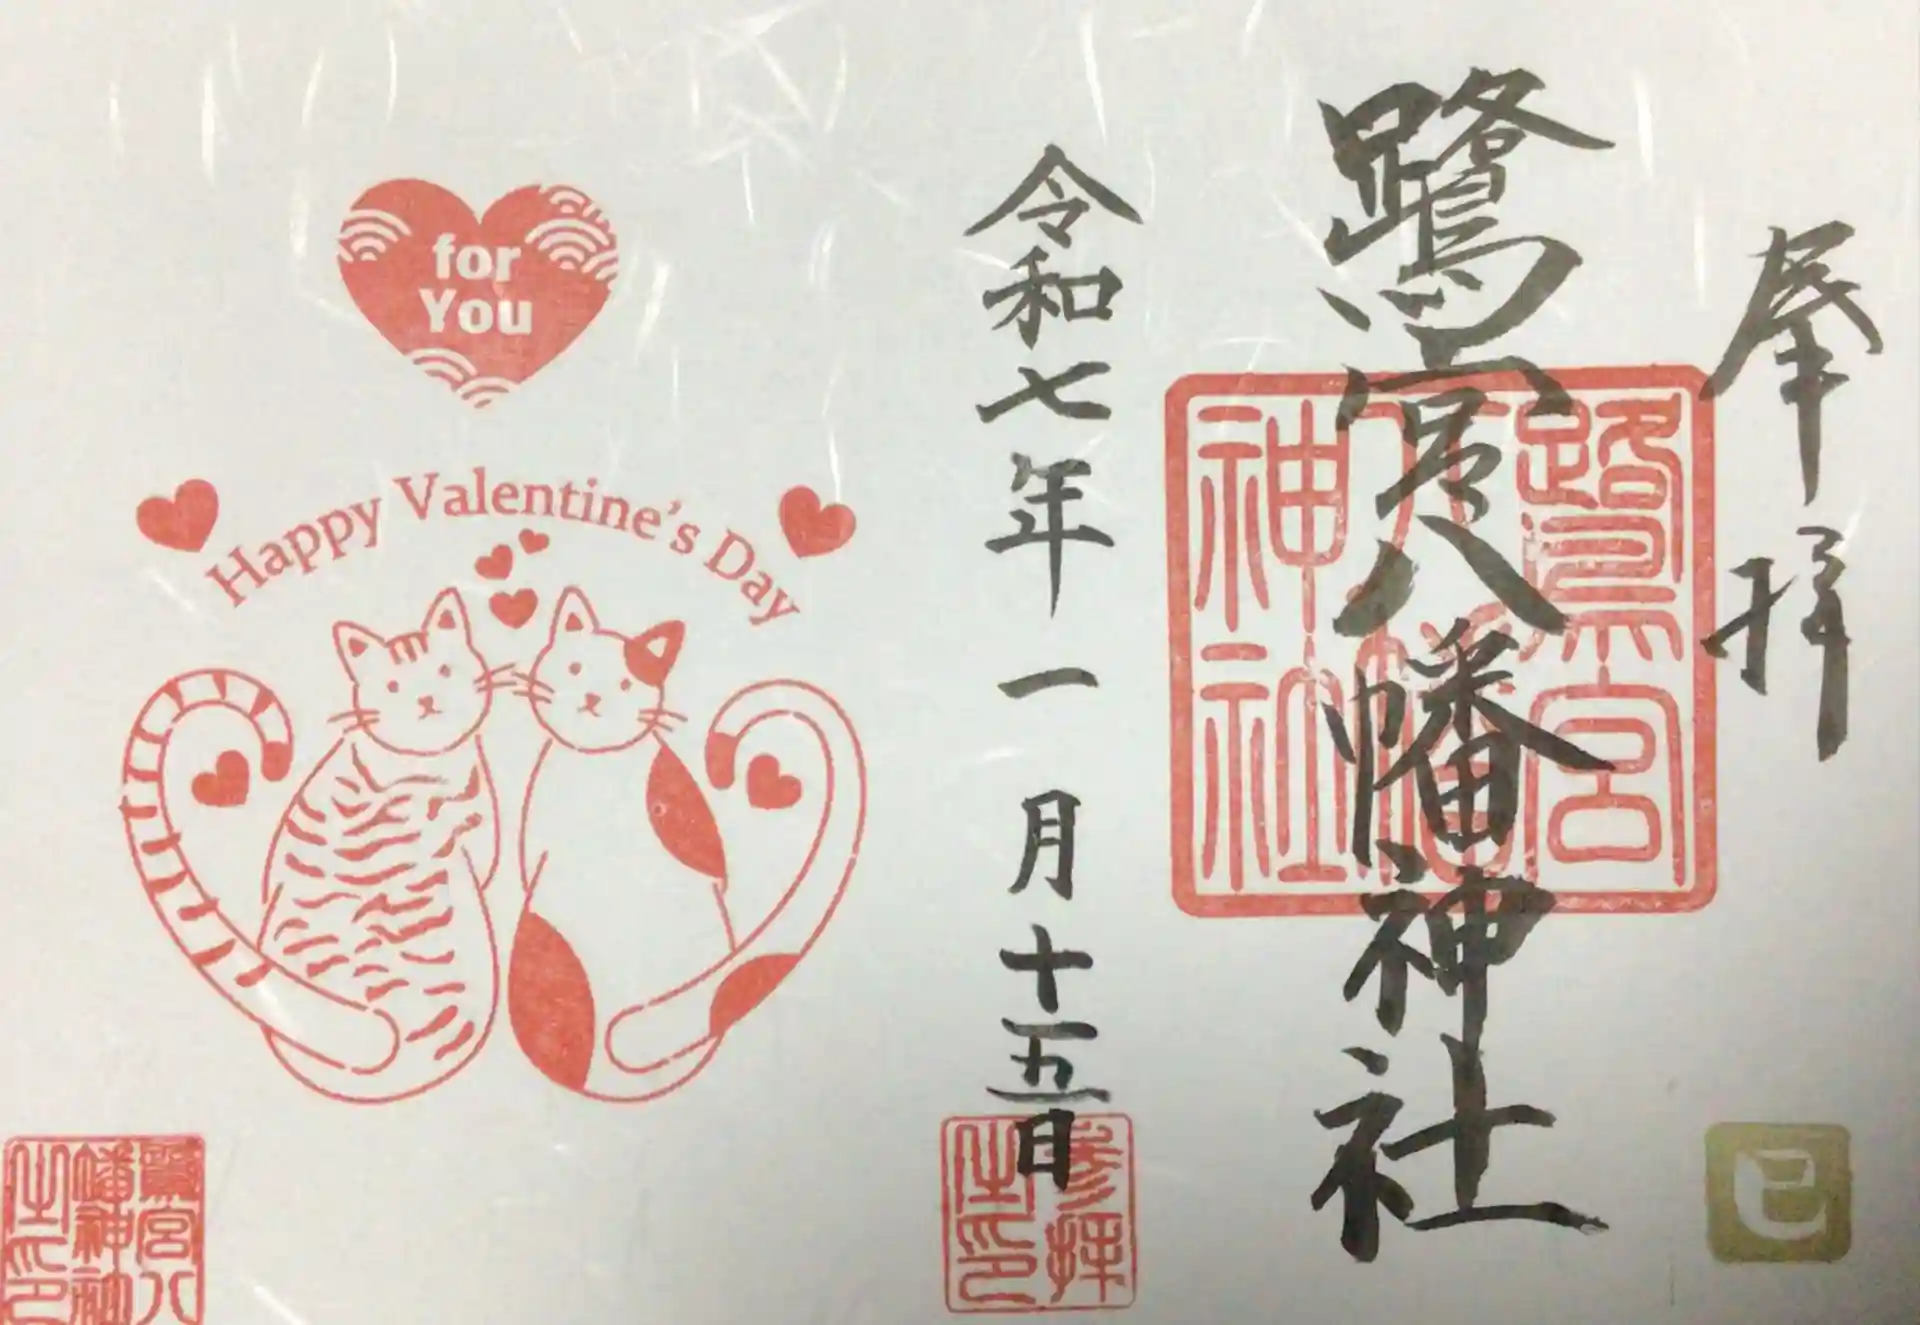 奉拝
鷺宮八幡神社
鷺宮
八幡
神社
巳
令和七年一月十五日
参拝
之印
for
You
Happy Valentine's Day
鷺宮八
幡神社
之印